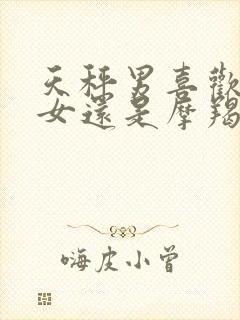 天秤男喜歡
女還是摩羯
嗨皮小曾